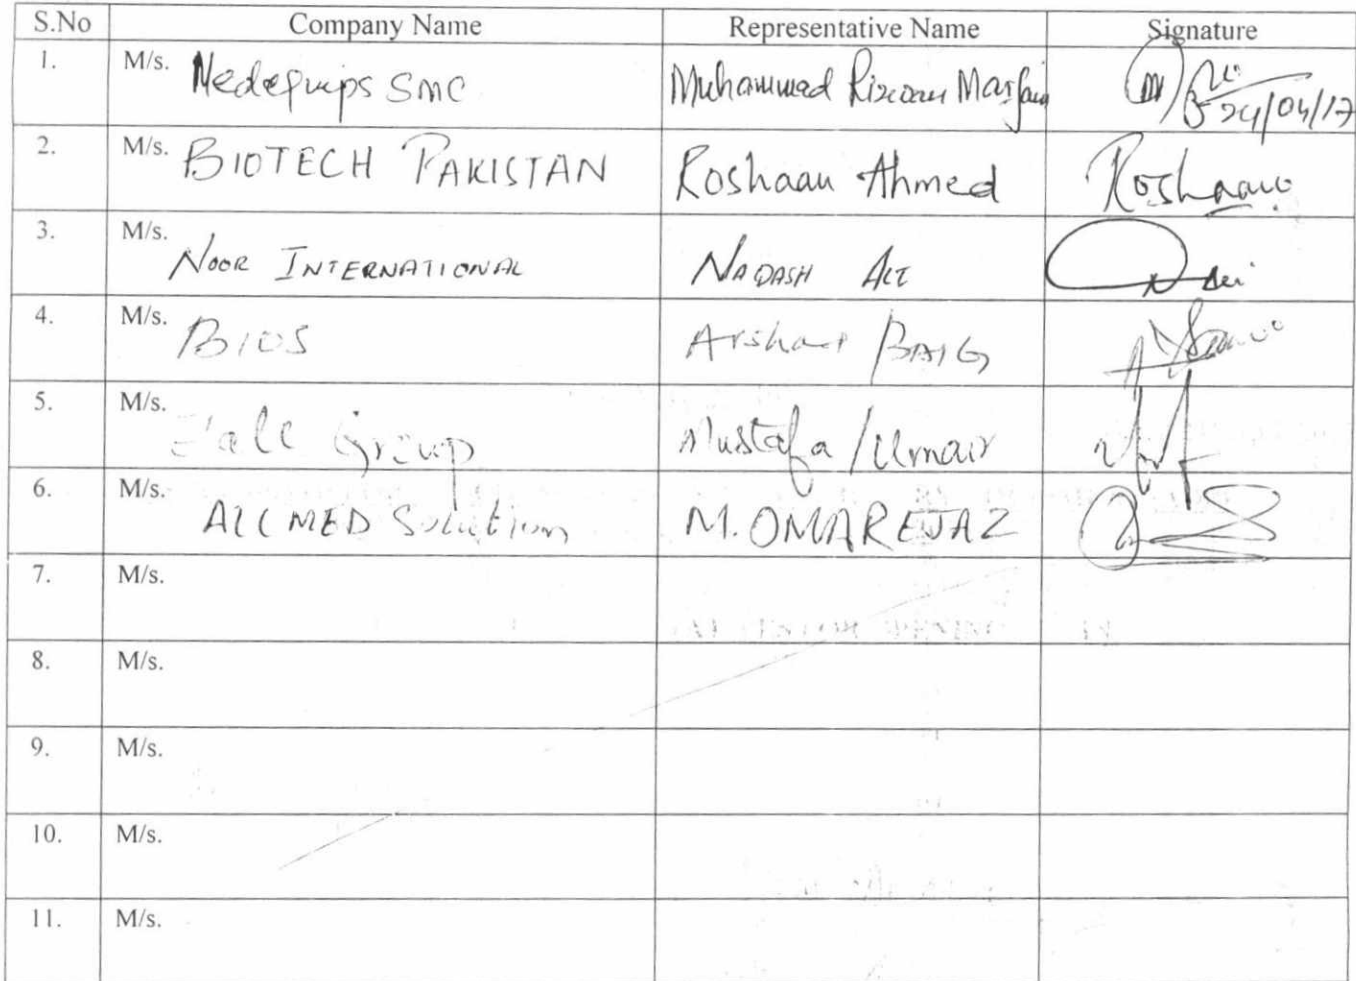 S.No Company Name Representative Name Signature
1. M/s. Medequips SMC Muhammad Rizwan 24/04/17
2. M/s. BIOTECH PAKISTAN Roshaan Ahmed Roshaan
3. M/s. NOOR INTERNATIONAL NAQASH ALI
4. M/s. BIOS Arshad BAIG
5. M/s. Group Mustafa / Umair
6. M/s. ALLMED Solution M. OMAR EJAZ
7. M/s.
8. M/s.
9. M/s.
10. M/s.
11. M/s.